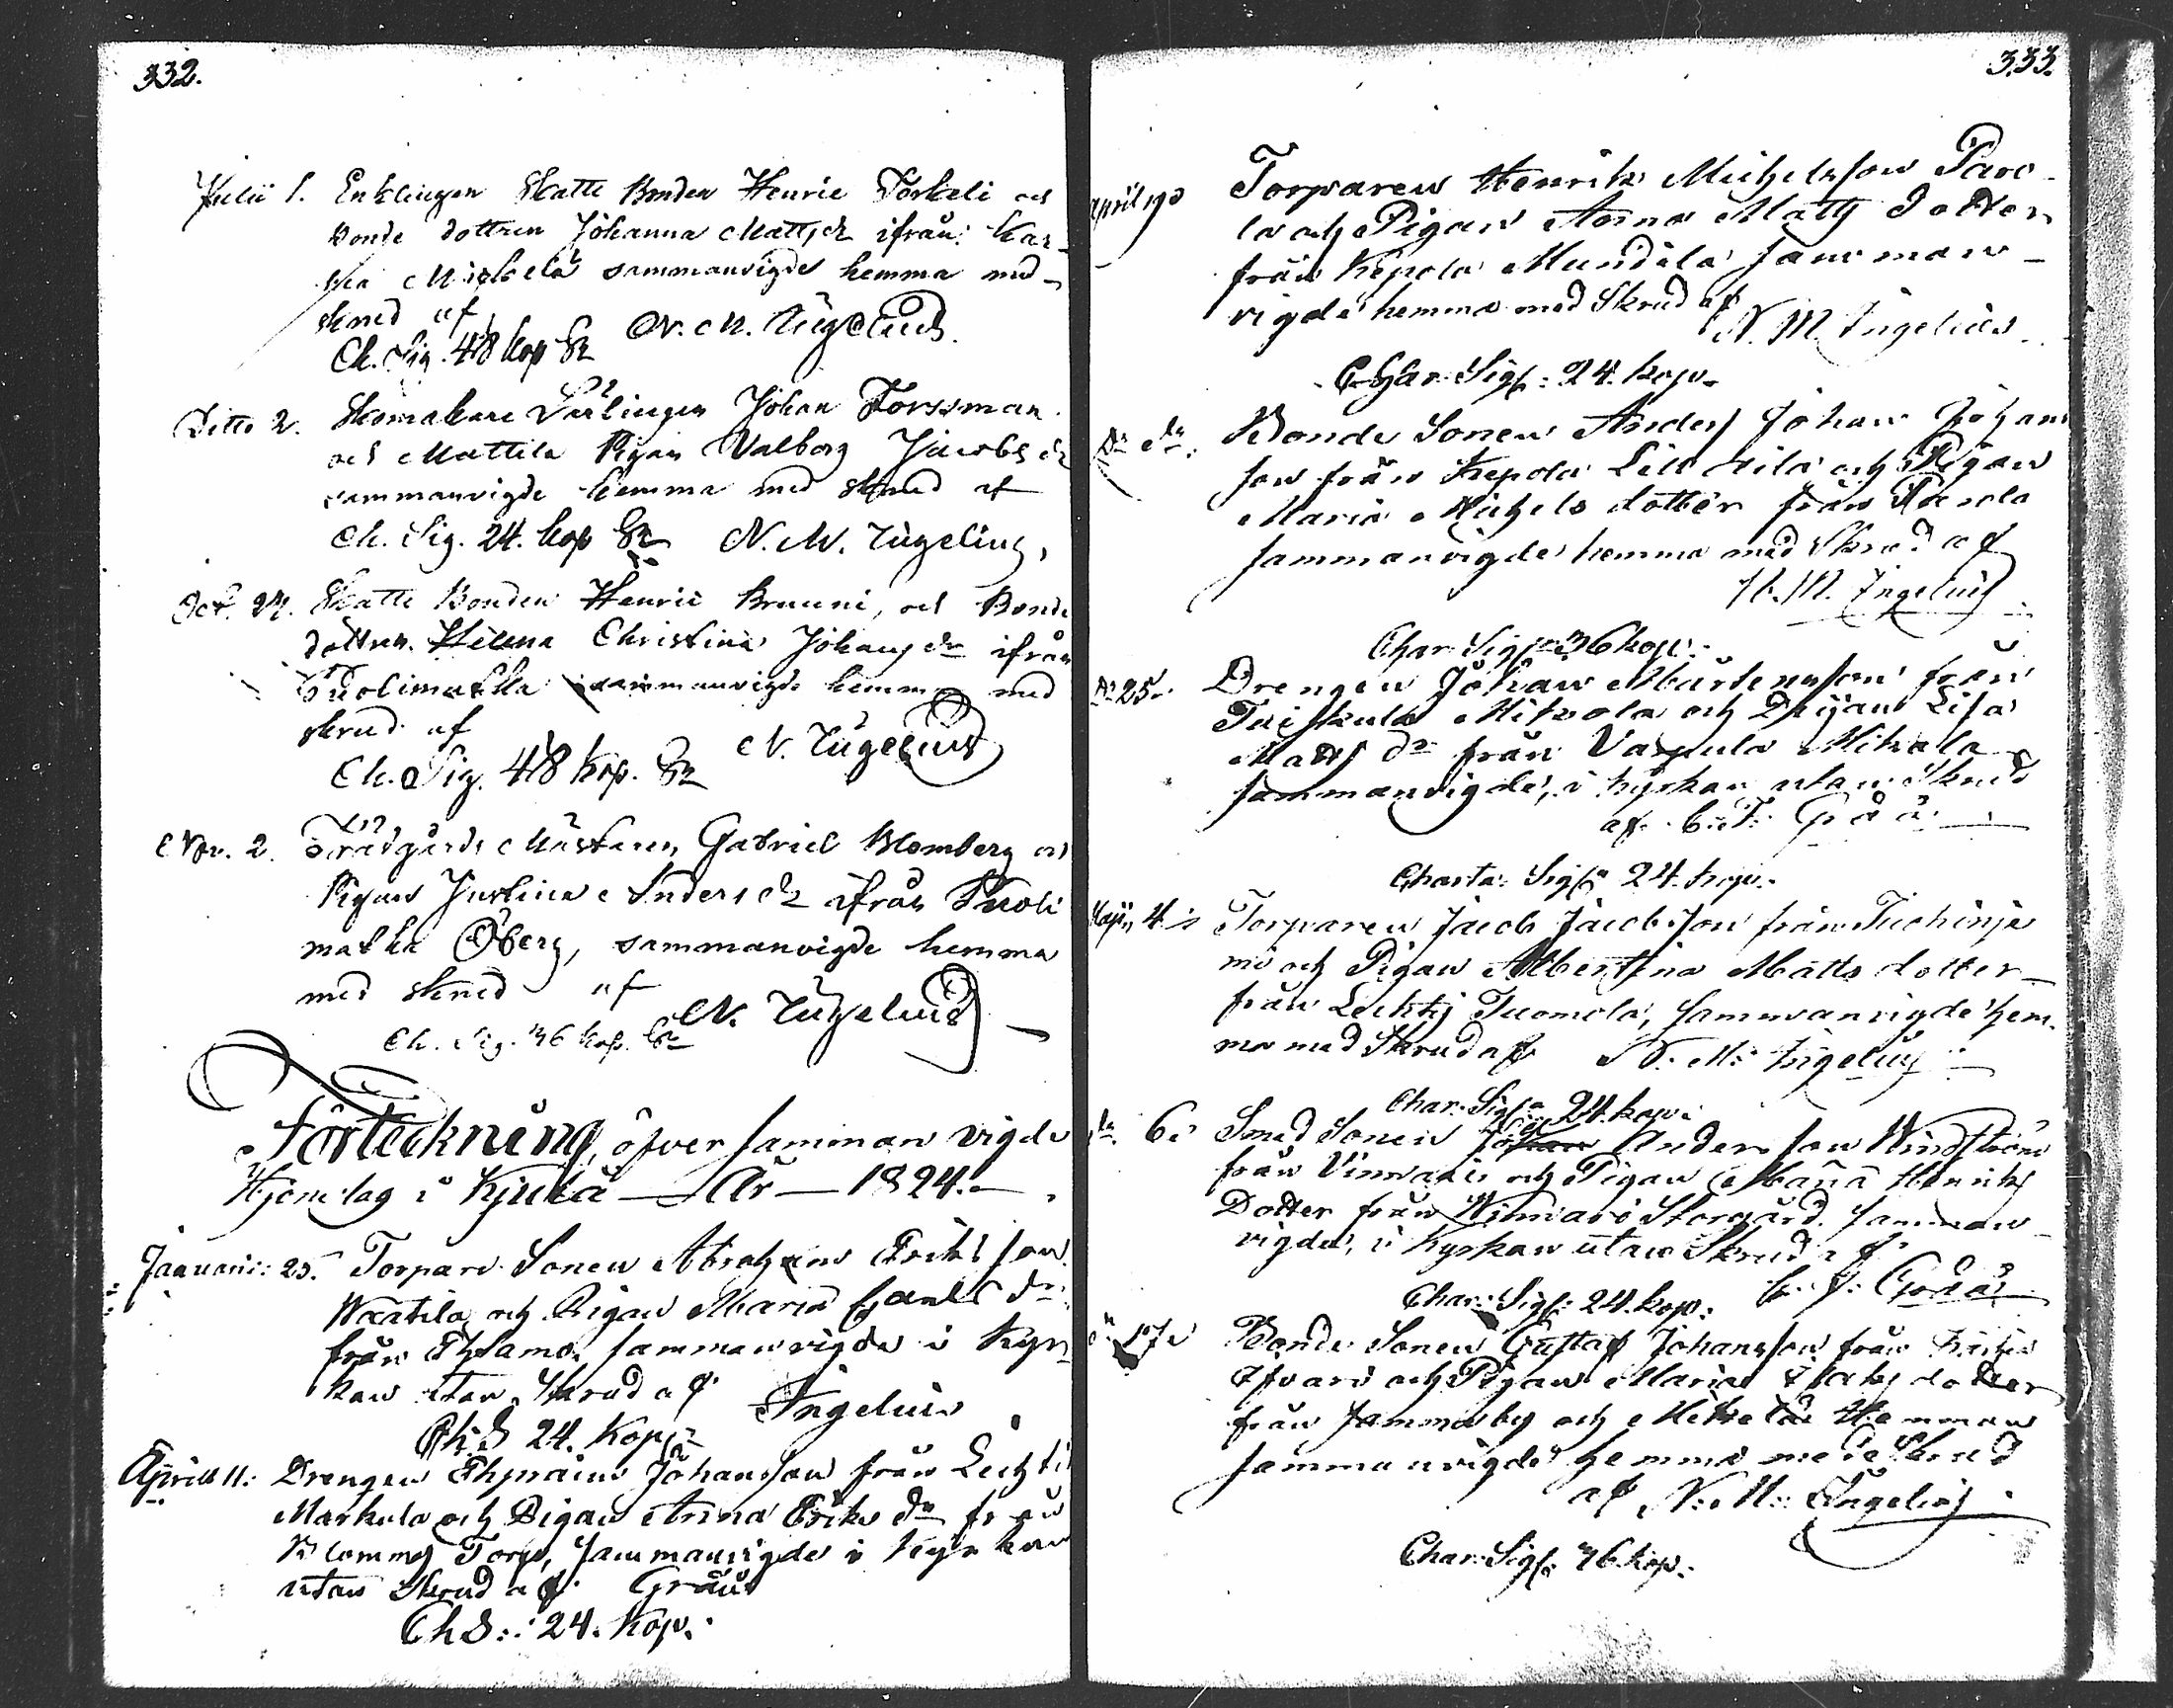 332.
Julii 1. Enklingen Skatte Bonden Henric Torkeli och
Bonde dottren Johanna Matts dr ifrån
Mickelä sammanvigde hemma med
skrud af
N. M. Ingelius
Ch. Sig. 48 kop Sr
Ditto 2. Skomakare Lärlingen Johan Forssman
och Mattila Pigan Valborg Jacobs dr
sammanvigde hemma med skrud af
Ch. Sig. 24. kop Sr N. M. Ingelius,
Oct. 27. Skatte Bonden Henric Bruuni, och Bonde
dottren Helena Christina Johans dr ifrån
Suolimatka sammanvigde hemma med
skrud af
N. Ingelius
Ch. Sig. 48 kop. Sr
Nov. 2. Trädgårds Mästaren Gabriel Blomberg och
Pigan Justina Anders dr ifrån Suoli
matka Öberg, sammanvigde hemma
med skrud af
N. Ingelius
Ch. Sig. 36 kop. Sr
Förteckning, öfver samman vigde
Hjonelag i Kjulå — År — 1824.
Januarii: 25. Torpare Sonen Abraham Eriksson
Waatila och Pigan Maria dr
från sammanvigde i Kyr
kan utan Skrud af Ingelius
Ch: S 24. Kop:
Aprill 11: Drengen Ephraim Johansson från Lechti
Markula och Pigan Anna Eriks dr från
Klommes Torp, sammanvigde i Kyrkan
utan Skrud af Gråå
Ch S:: 24. Kop.
333.
April Torparen Henrik Michelsson Paro
la och Pigan Anna Matts Dotter
från Kepola Mundila samman
vigde hemma med Skrud af
N. M. Ingelius
Char Sigs: 24. kop.
Do do. Bonde Sonen Anders Johan Johans
son från Kepola och Pigan
Maria Michels dotter från Parola
sammanvigde hemma med Skrud af
N. M. Ingelius
Char. Sigs 36 kop:
Do 25. Drengen Johan Mårtensson från
Tuiskula Mikola och Pigan Lisa
Matts dr från Vaspula Mikola
sammanvigde, i kyrkan utan Skrud
af
Charta: Sigs 24. kop.
Maji, 4. Torparen Jacob Jacobsson från
mi och Pigan Albertina Matts dotter
från Lechtj Tuomola, sammanvigde hem
ma med Skrud af N. M: Ingelius
Char: Sigs 24. kop:
do. 6. Smed Sonen Andersson Windström
från Vinnaris och Pigan Maria Henriks
Dotter från Winnaris Storgård. samman
vigde, i Kyrkan utan Skrud af
Char: Sigs: 24. kop:
Bonde Sonen Gustaf Johansson från
Ifvars och Pigan Maria Isaks dotter
från och Mikola Hemman
sammanvigde hemma med Skrud
af N: M: Ingelius
Char: Sigs: 36 kop.